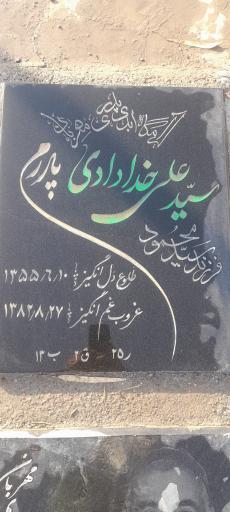 آرامگاه ابدی پدری مهربان
سیّد علی خدادادی پاررم
فرزند سیّد محمود
طلوع دل انگیز: ۱۳۵۵/۶/۱۰
غروب غم انگیز: ۱۳۸۲/۸/۲۷
ر ۲۵ ق ۲ ب ۱۲
مهربان